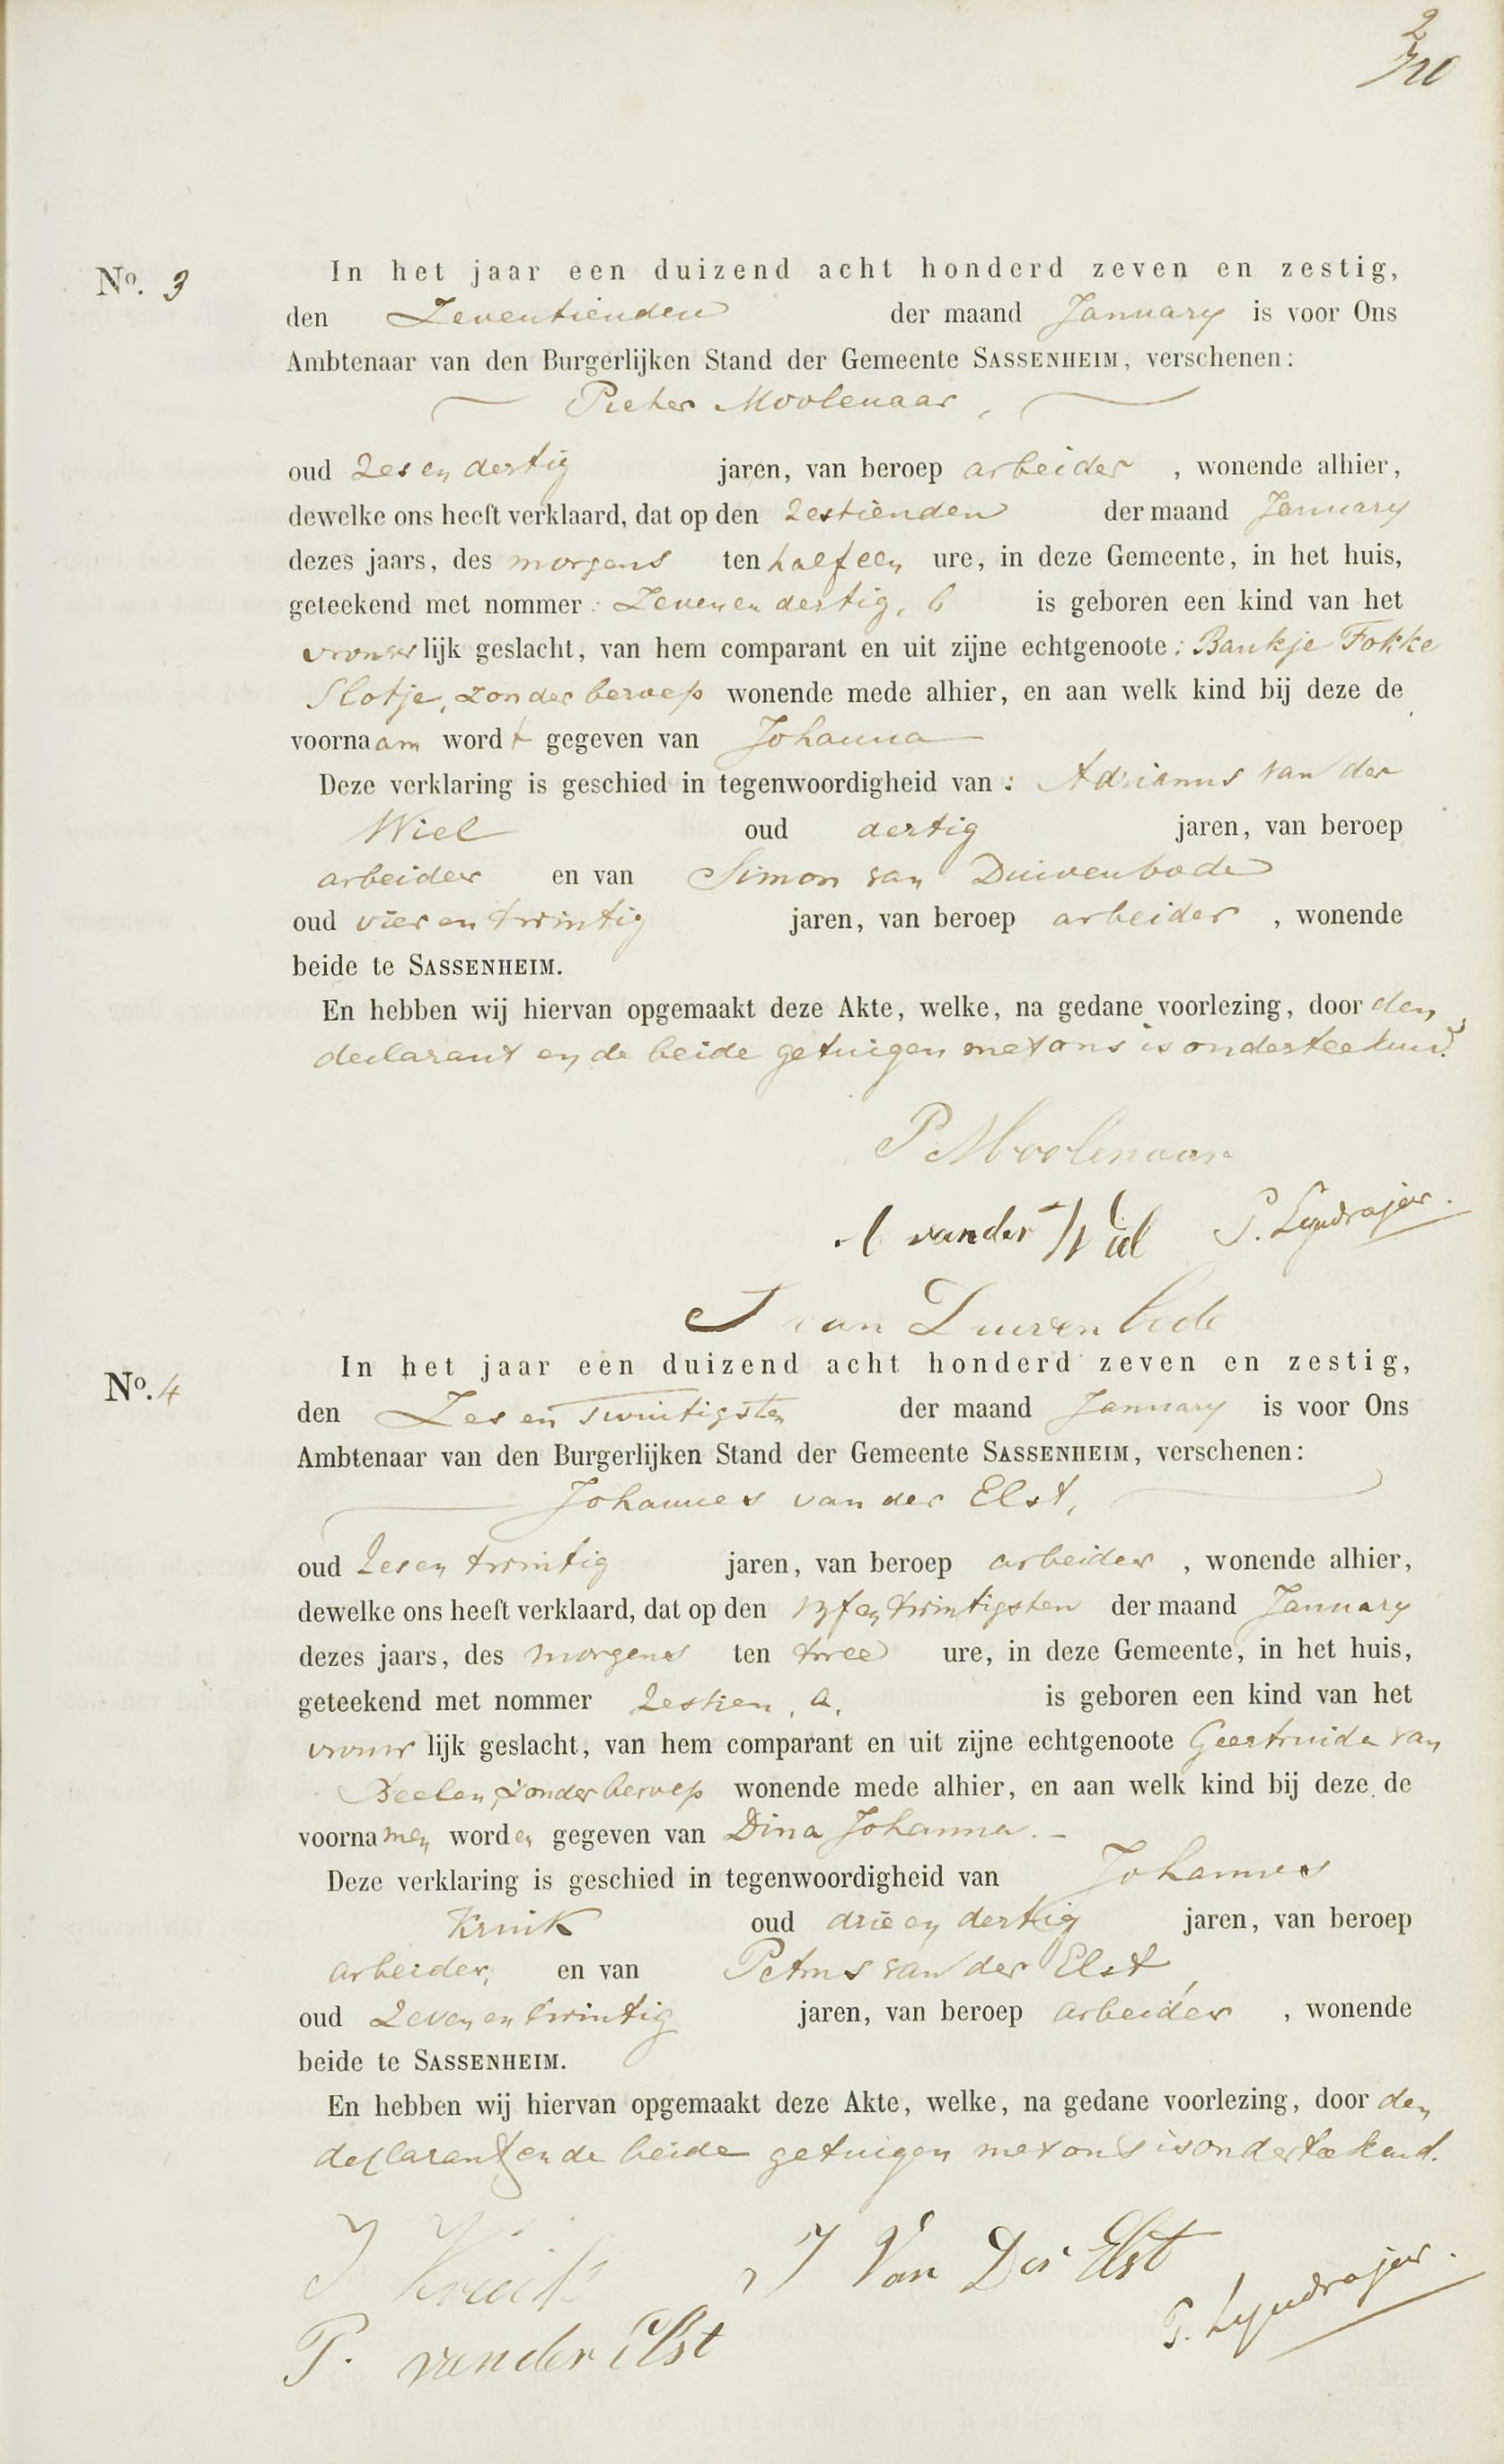 2
No. 3
In het jaar een duizend acht honderd zeven en zestig,
den Zeventienden der maand January is voor Ons
Ambtenaar van den Burgerlijken Stand der Gemeente SASSENHEIM, verschenen:
Pieter Moolenaar,
oud Zes en dertig jaren, van beroep arbeider, wonende alhier,
dewelke ons heeft verklaard, dat op den Zestienden der maand January
dezes jaars, des morgens ten half een ure, in deze Gemeente, in het huis,
geteekend met nommer: Zeven en dertig, b is geboren een kind van het
vrouwlijk geslacht, van hem comparant en uit zijne echtgenoote: Baukje Fokke
Slotje, zonder beroep wonende mede alhier, en aan welk kind bij deze de
voornaam wordt gegeven van Johanna
Deze verklaring is geschied in tegenwoordigheid van: Adrianus van der
Wiel oud dertig jaren, van beroep
arbeider en van Simon van Duivenbode
oud vier en twintig jaren, van beroep arbeider, wonende
beide te SASSENHEIM.
En hebben wij hiervan opgemaakt deze Akte, welke, na gedane voorlezing, door den
declarant en de beide getuigen met ons is onderteekend.
P Moolenaar
A van der Wiel P. Lyndrajer.
S van Duivenbode
No. 4
In het jaar een duizend acht honderd zeven en zestig,
den Zes en Twintigsten der maand January is voor Ons
Ambtenaar van den Burgerlijken Stand der Gemeente SASSENHEIM, verschenen:
Johannes van der Elst,
oud Zes en twintig jaren, van beroep arbeider, wonende alhier,
dewelke ons heeft verklaard, dat op den vyf en twintigsten der maand January
dezes jaars, des morgens ten twee ure, in deze Gemeente, in het huis,
geteekend met nommer Zestien, a. is geboren een kind van het
vrouwlijk geslacht, van hem comparant en uit zijne echtgenoote Geertruida van
Beelen, zonder beroep wonende mede alhier, en aan welk kind bij deze de
voornamen worden gegeven van Dina Johanna.-
Deze verklaring is geschied in tegenwoordigheid van Johannes
Kruik oud drie en dertig jaren, van beroep
arbeider, en van Petrus van der Elst,
oud Zeven en twintig jaren, van beroep arbeider, wonende
beide te SASSENHEIM.
En hebben wij hiervan opgemaakt deze Akte, welke, na gedane voorlezing, door den
declarant en de beide getuigen met ons is onderteekend.
J Kruik J Van Der Elst
P. van der Elst P. Lyndrajer.